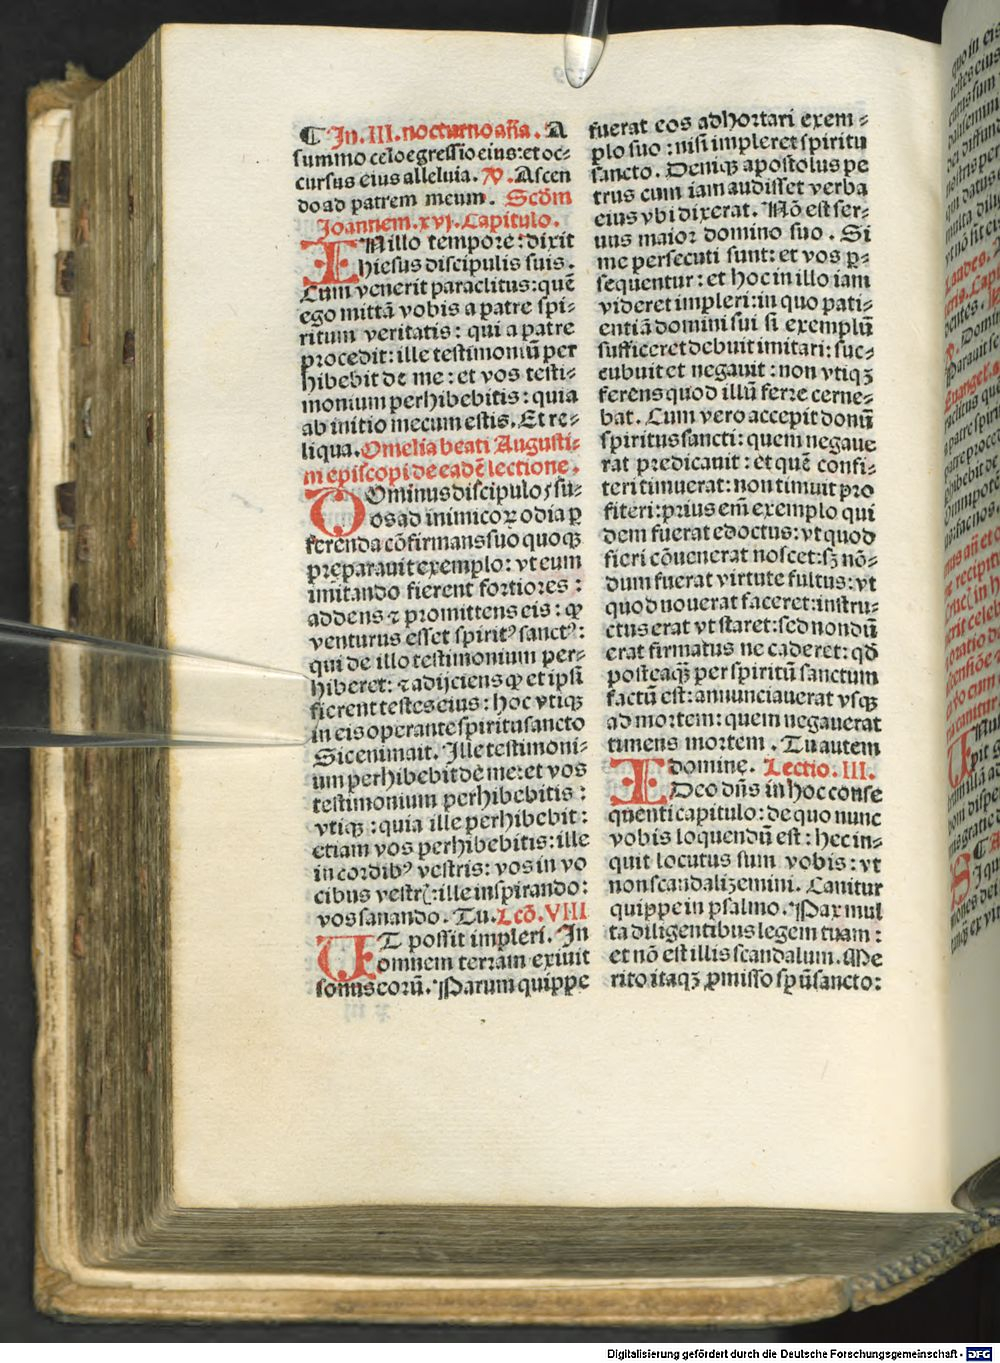 ¶ In .III. nocturno añã. A
summo celo egressio eius: et oc⸗
cursus eius alleluia. ꝟ. Ascen
do ad patrem meum. Scd̄m
Joannem .xvj. Capitulo.
IN illo tempore: dixit
hiesus discipulis suis.
Cum venerit paraclitus: quē
ego mittā vobis a patre spi⸗
ritum veritatis: qui a patre
procedit: ille testimoniū per
hibebit de me: et vos testi⸗
monium perhibebitis: quia
ab initio mecum estis. Et re⸗
liqua. Omelia beati Augusti⸗
ni episcopi de eadē lectione.
DOminus discipulos su⸗
os ad inimicoꝝ odia ꝑ
ferenda cōfirmans suo quoqꝫ
preparauit exemplo: vt eum
imitando fierent fortiores:
addens ⁊ promittens eis: ꝙ
venturus esset spiritꝰ sanctꝰ:
qui de illo testimonium per⸗
hiberet: ⁊ adijciens ꝙ et ipsi
fierent testes eius: hoc vtiqꝫ
in eis operante spiritu sancto
Sic enim ait. Ille testimoni⸗
um perhibebit de me: et vos
testimonium perhibebitis:
vtiqꝫ: quia ille perhibebit:
etiam vos perhibebitis: ille
in cordibꝰ vestris: vos in vo
cibus vestrꝭ: ille inspirando:
vos sanando. Tu. Lcō. VIII
UT possit impleri. In
omnem terram exiuit
sonus eorū. Parum quippe
fuerat eos adhortari exem⸗
plo suo: nisi impleret spiritu
sancto. Deniqꝫ apostolus pe
trus cum iam audisset verba
eius vbi dixerat. Nō est ser⸗
uus maior domino suo. Si
me persecuti sunt: et vos ꝑ⸗
sequentur: et hoc in illo iam
videret impleri: in quo pati⸗
entiā domini sui si exemplū
sufficeret debuit imitari: suc⸗
cubuit et negauit: non vtiqꝫ
ferens quod illū ferre cerne⸗
bat. Cum vero accepit donū
spiritus sancti: quem negaue
rat predicauit: et quē confi⸗
teri timuerat: non timuit pro
fiteri: prius em̄ exemplo qui
dem fuerat edoctus: vt quod
fieri cōuenerat nosceret: sꝫ nō⸗
dum fuerat virtute fultus: vt
quod nouerat faceret: instru⸗
ctus erat vt staret: sed nondū
erat firmatus ne caderet: qđ
posteaqꝫ per spiritū sanctum
factū est: annunciauerat vsqꝫ
ad mortem: quem negauerat
timens mortem. Tu autem
domine. Lectio. III.
IDeo dn̄s in hoc conse
quenti capitulo: de quo nunc
vobis loquendū est: hec in⸗
quit locutus sum vobis: vt
non scandalizemini. Canitur
quippe in psalmo. Pax mul
ta diligentibus legem tuam:
et nō est illis scandalum. Me
rito itaqꝫ ꝓmisso spū sancto:
Digitalisierung gefördert durch die Deutsche Forschungsgemeinschaft - DFG